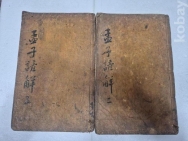 孟子諺解 二
孟子諺解 三
kobay